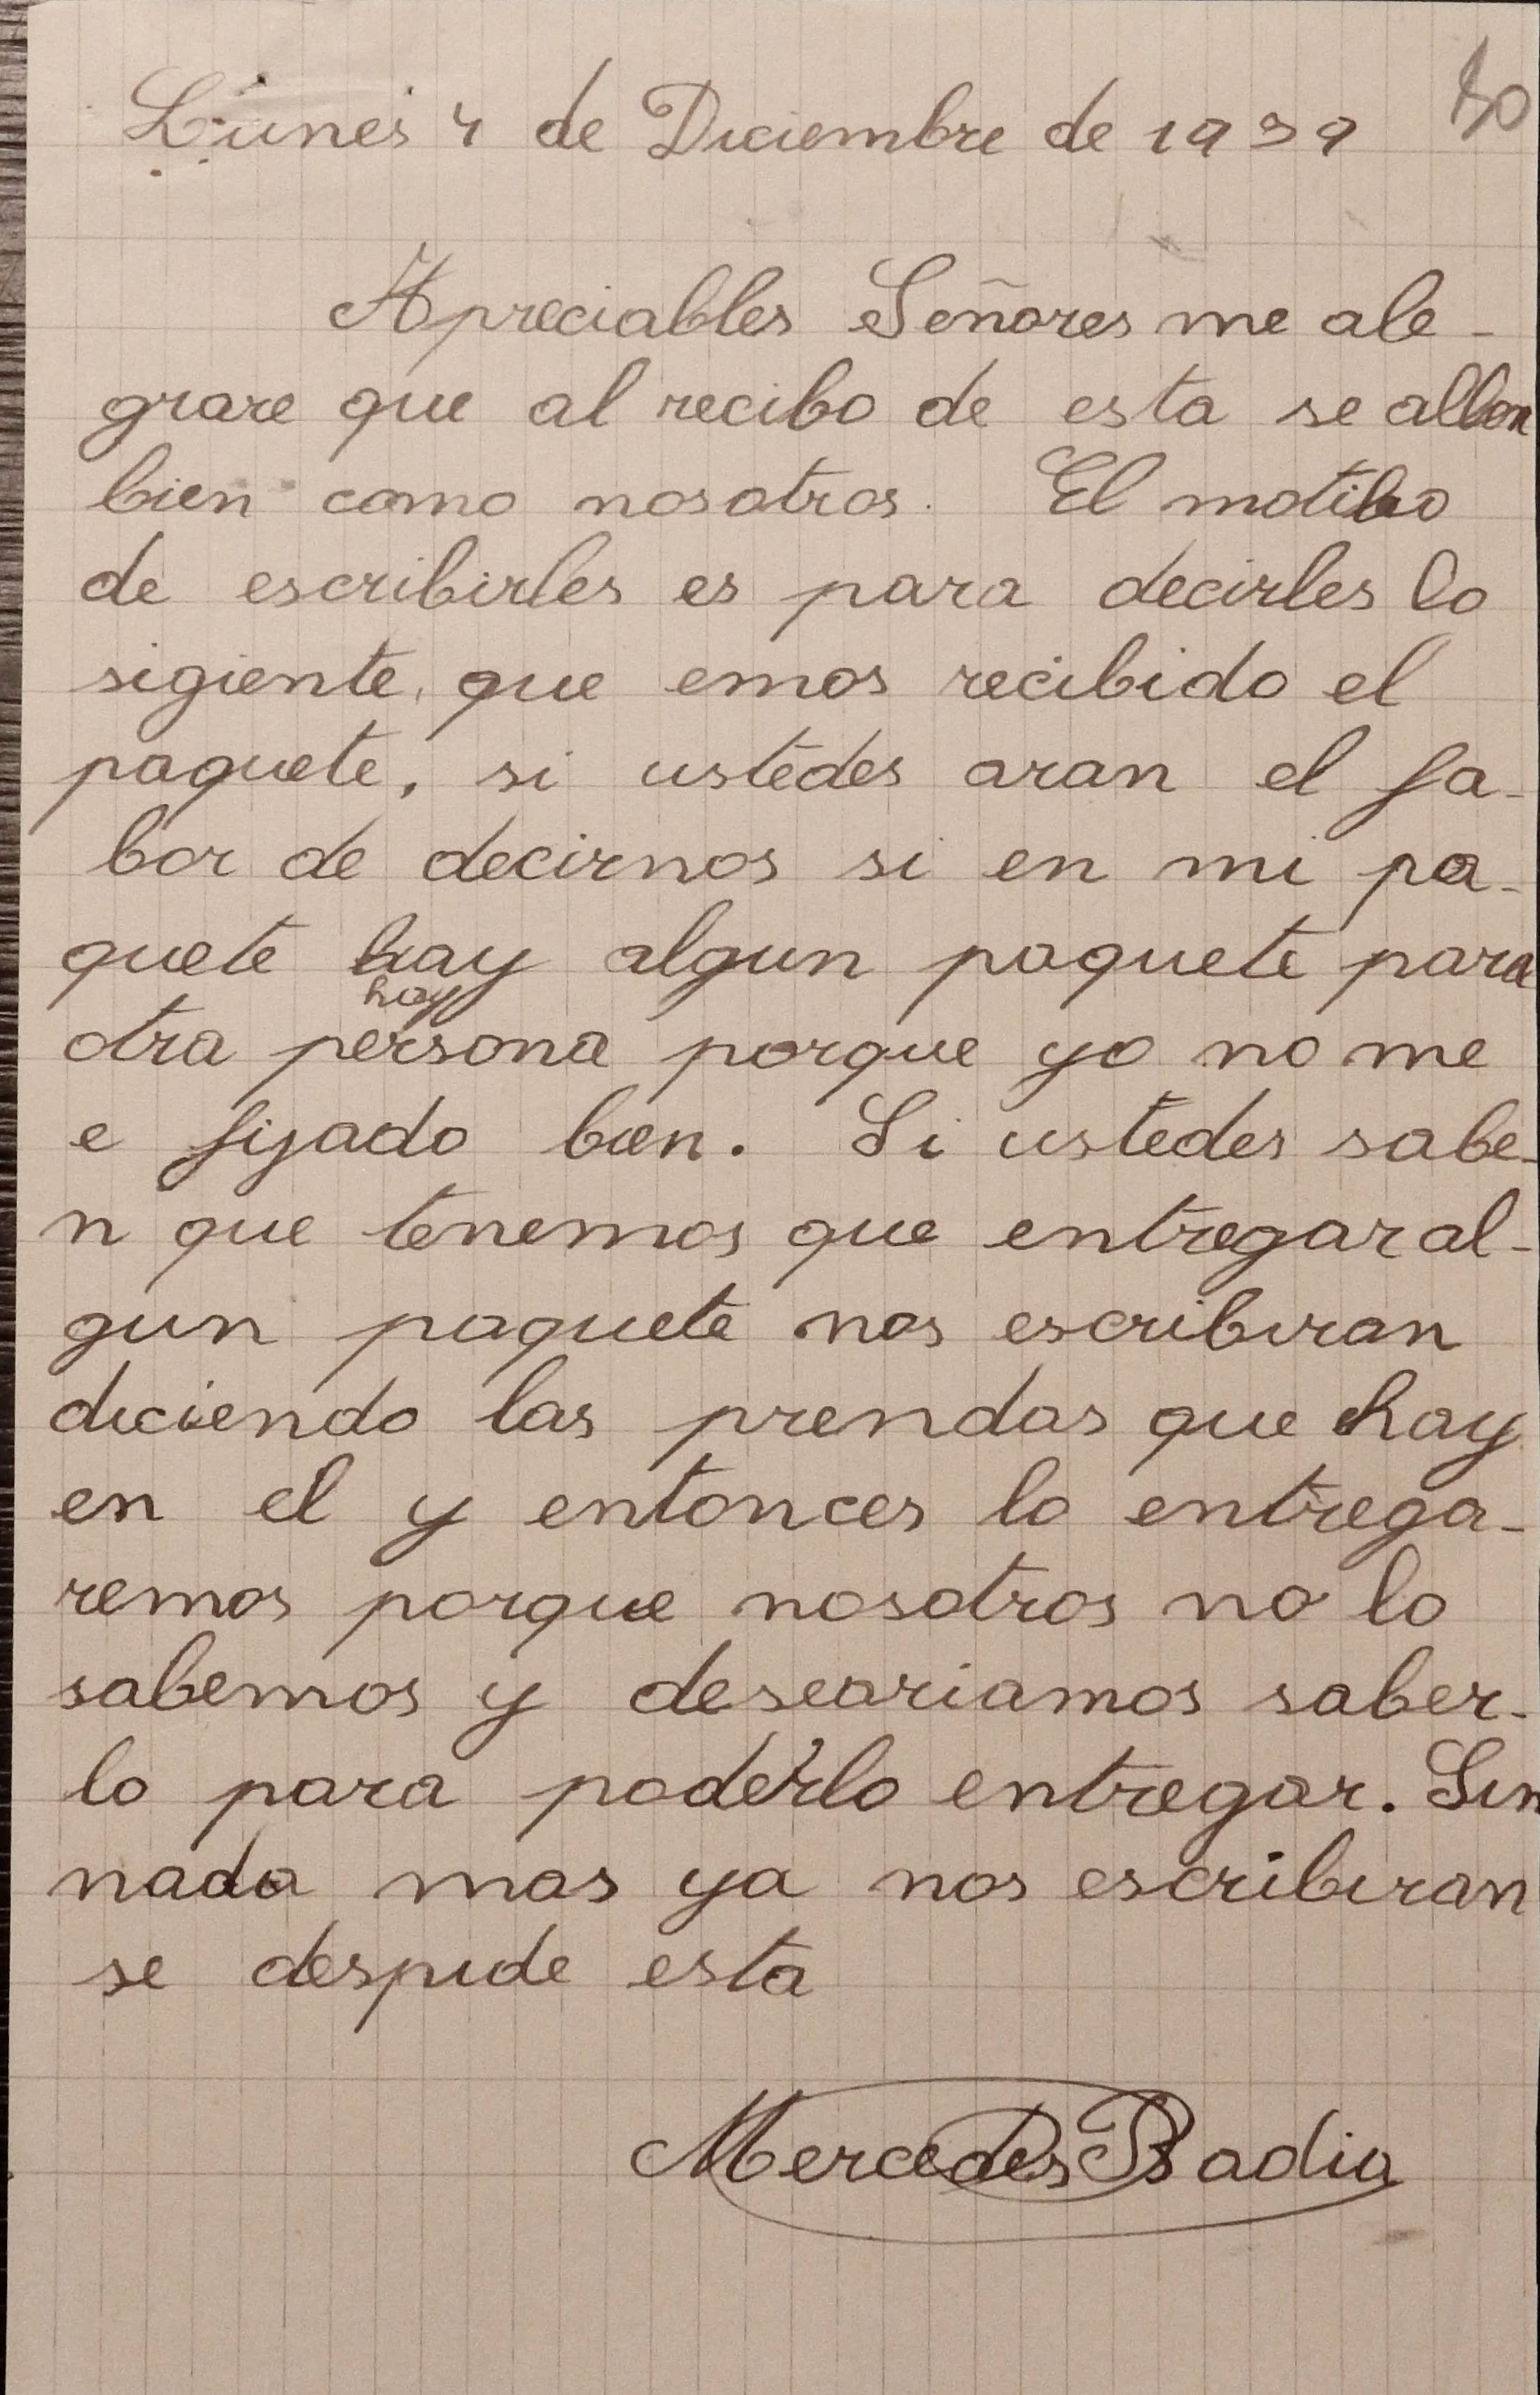 Lunes 4 de Diciembre de 1939
Apreciables Señores me ale-
grare que al recibo de esta se allen
bien como nosotros. El motibo
de escribirles es para decirles lo
sigiente, que emos recibido el
paquete, si ustedes aran el fa-
bor de decirnos si en mi pa-
quete hay algun paquete para
hay
otra persona porque yo no me
e fijado bien. Si ustedes sabe-
n que tenemos que entregar al-
gun paquete nos escribiran
diciendo las prendas que hay
en el y entonces lo entrega-
remos porque nosotros no lo
sabemos y deseariamos saber-
lo para poderlo entregar. Sin
nada mas ya nos escribiran
se despide esta
Mercedes Badia